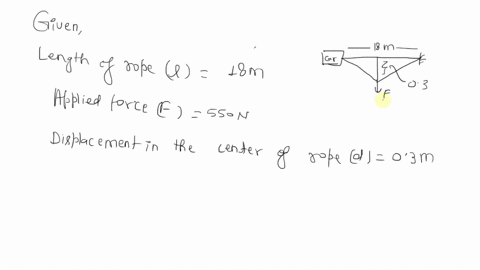 Given,
Length of rope (l) = 18m
Applied force (F) = 550N
Displacement in the center of rope (d) = 0.3m
18m
Car
0.3
F